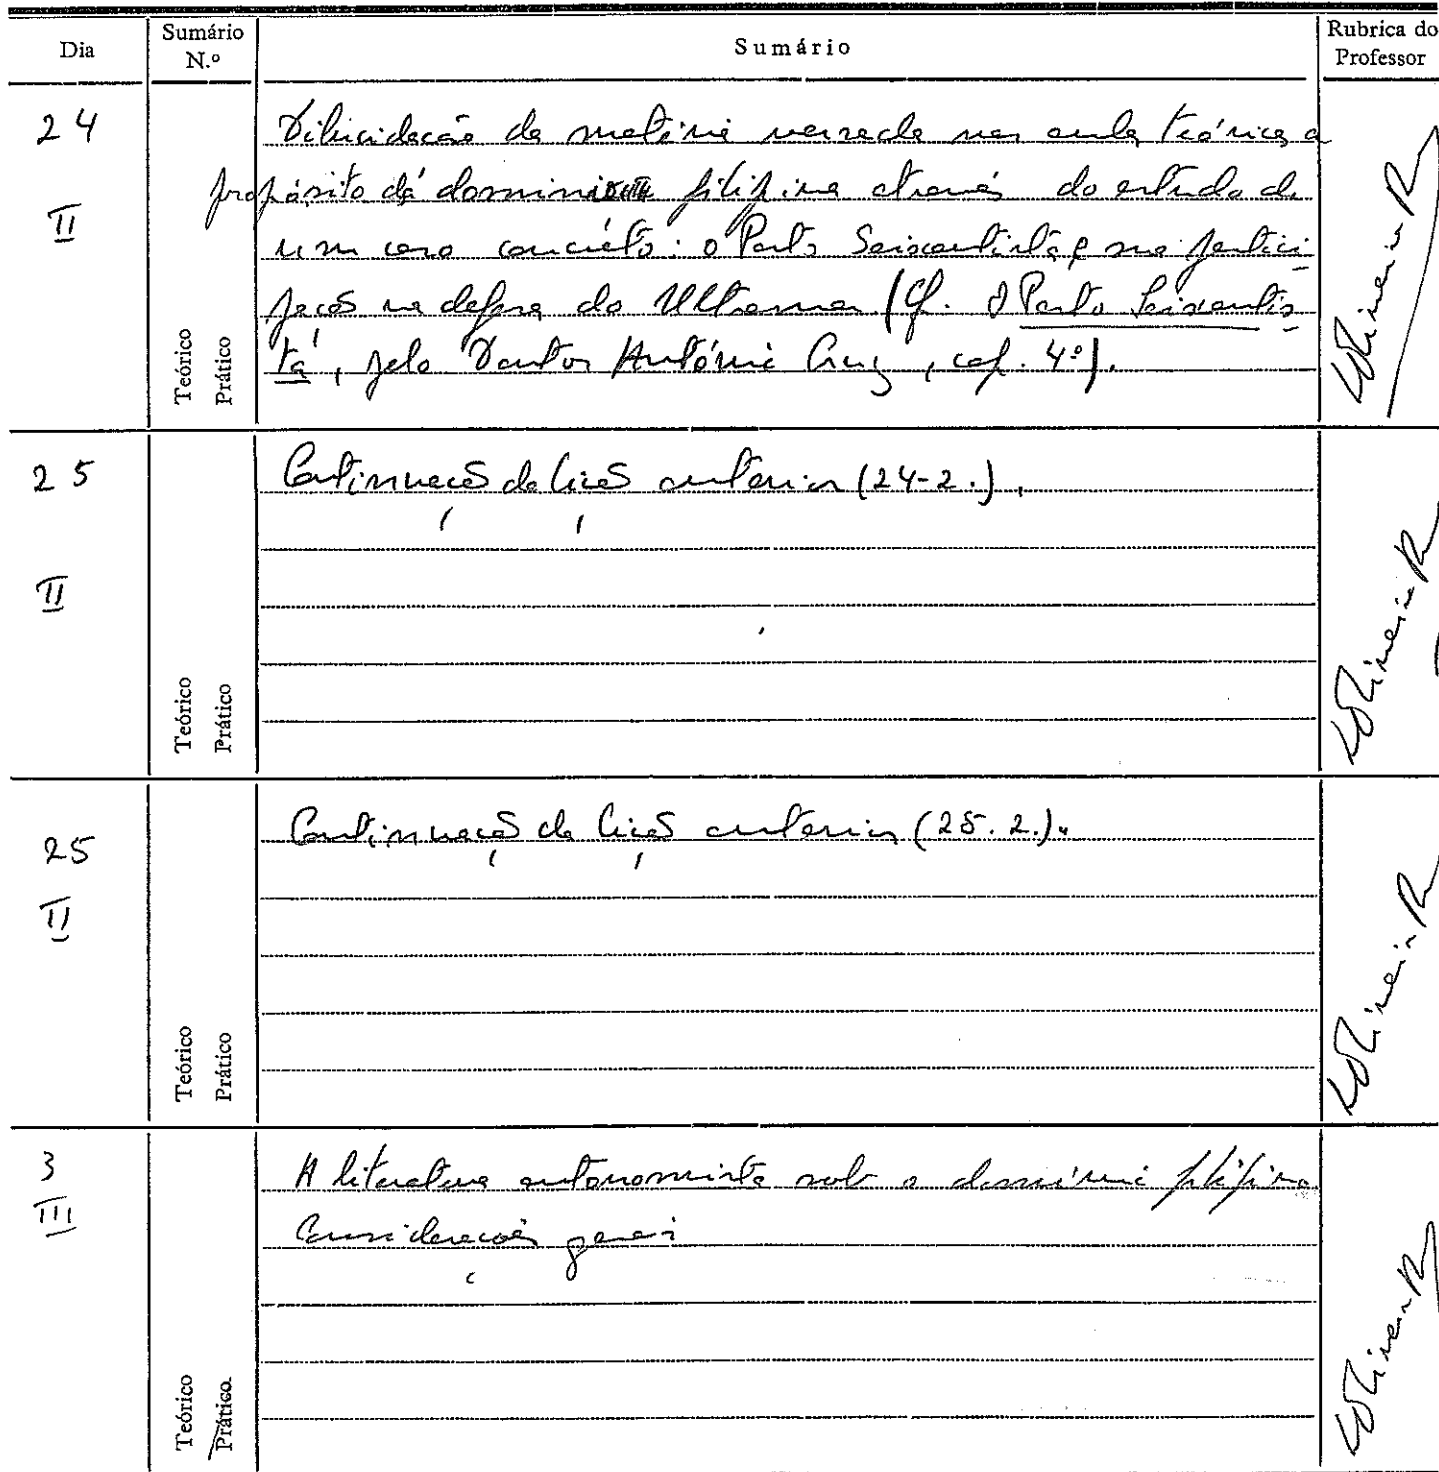 Dia
Sumário N.º
Sumário
Rubrica do Professor
24
II
Teórico
Prático
Dilucidação da matéria versada nas aulas teóricas a
propósito do domínio filipino através do estudo de
um caso concreto: o Porto Seiscentista e sua partici-
pação na defesa do Ultramar. (Cf. O Porto Seiscentis-
ta, pelo Doutor António Cruz, cap. 4º).
25
II
Teórico
Prático
Continuação da lição anterior (24-2.).
25
II
Teórico
Prático
Continuação da lição anterior (25.2.).
3
III
Teórico
Prático
A literatura autonomista sob o domínio filipino.
Considerações gerais